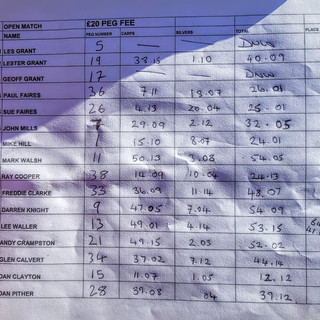 OPEN MATCH £20 PEG FEE
NAME PEG NUMBER CARPS SILVERS TOTAL PLACE
LES GRANT 5 — — DNW
LESTER GRANT 19 38.15 1.10 40.09
GEOFF GRANT 17 — DNW
PAUL FAIRES 36 7.11 18.07 26.01
SUE FAIRES 26 4.13 20.04 25.01
JOHN MILLS 7 29.09 2.12 32.05
MIKE HILL 1 15.10 8.07 24.01
MARK WALSH 11 50.13 3.08 54.05
RAY COOPER 38 14.09 10.04 24.13
FREDDIE CLARKE 33 36.09 11.14 48.07
DARREN KNIGHT 9 47.05 7.04 54.09
LEE WALLER 13 49.01 4.14 53.15
ANDY CRAMPSTON 21 49.15 2.03 52.02
GLEN CALVERT 34 37.02 7.12 44.14
DAN CLAYTON 15 11.07 1.05 12.12
DAN PITHER 28 39.08 04 39.12